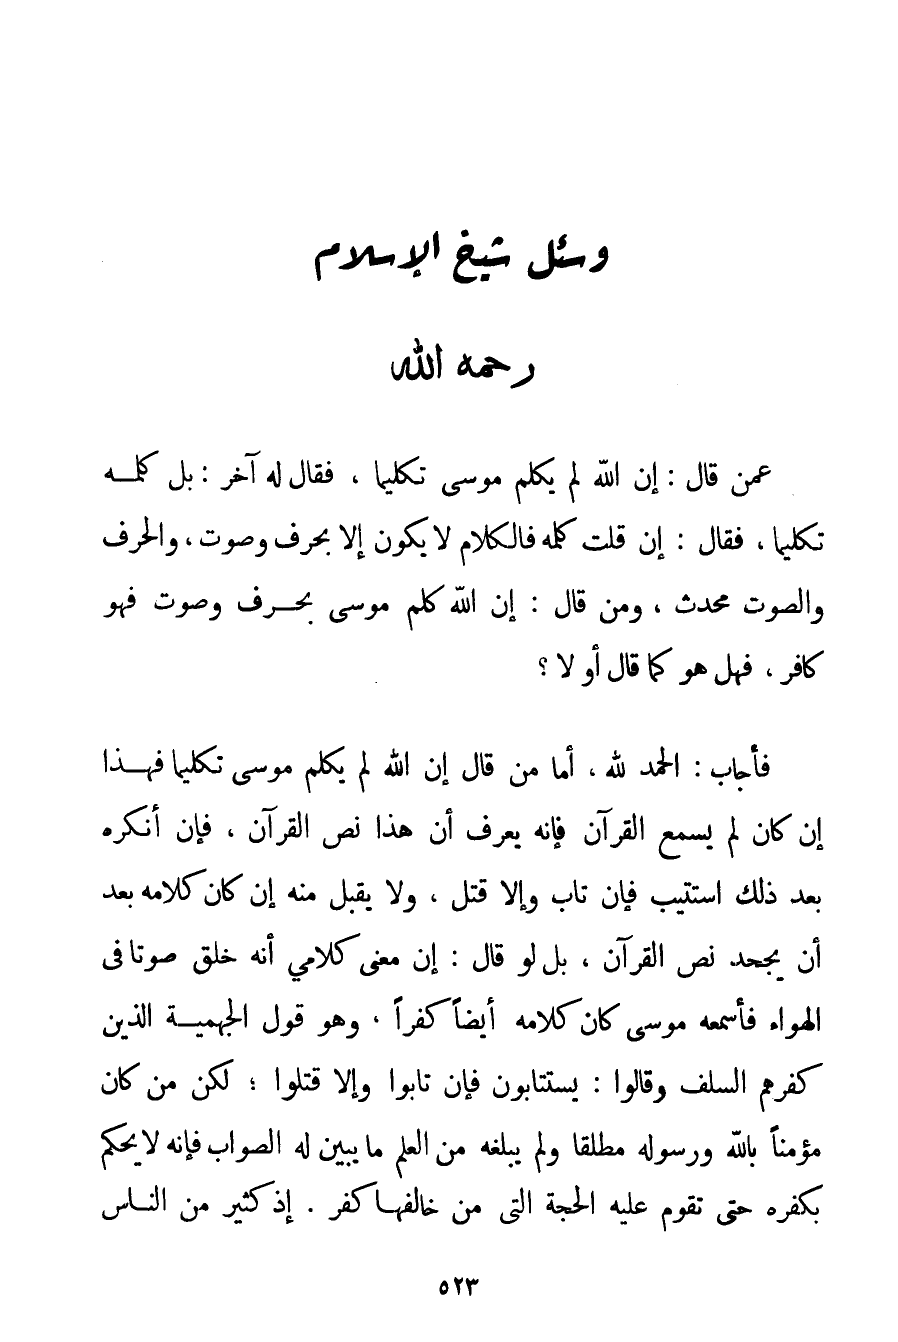 وسئل شيخ الإسلام
رحمه الله
عمن قال : إن الله لم يكلم موسى تكليما ، فقال له آخر : بل كلمـــه
تكليما ، فقال : إن قلت كلمه فالكلام لا يكون إلا بحرف وصوت ، والحرف
والصوت محدث ، ومن قال : إن الله كلم موسى بحـــرف وصوت فهو
كافر ، فهل هو كما قال أو لا ؟
فأجاب : الحمد لله ، أما من قال إن الله لم يكلم موسى تكليما فهـــذا
إن كان لم يسمع القرآن فإنه يعرف أن هذا نص القرآن ، فإن أنكره
بعد ذلك استتيب فإن تاب وإلا قتل ، ولا يقبل منه إن كان كلامه بعد
أن يجحد نص القرآن ، بل لو قال : إن معنى كلامي أنه خلق صوتا فى
الهواء فأسمعه موسى كان كلامه أيضاً كفراً ، وهو قول الجهميـــة الذين
كفرهم السلف وقالوا : يستتابون فإن تابوا وإلا قتلوا ؛ لكن من كان
مؤمناً بالله ورسوله مطلقا ولم يبلغه من العلم ما يبين له الصواب فإنه لا يحكم
بكفره حتى تقوم عليه الحجة التى من خالفهـا كفر . إذ كثير من النـاس
٥٢٣